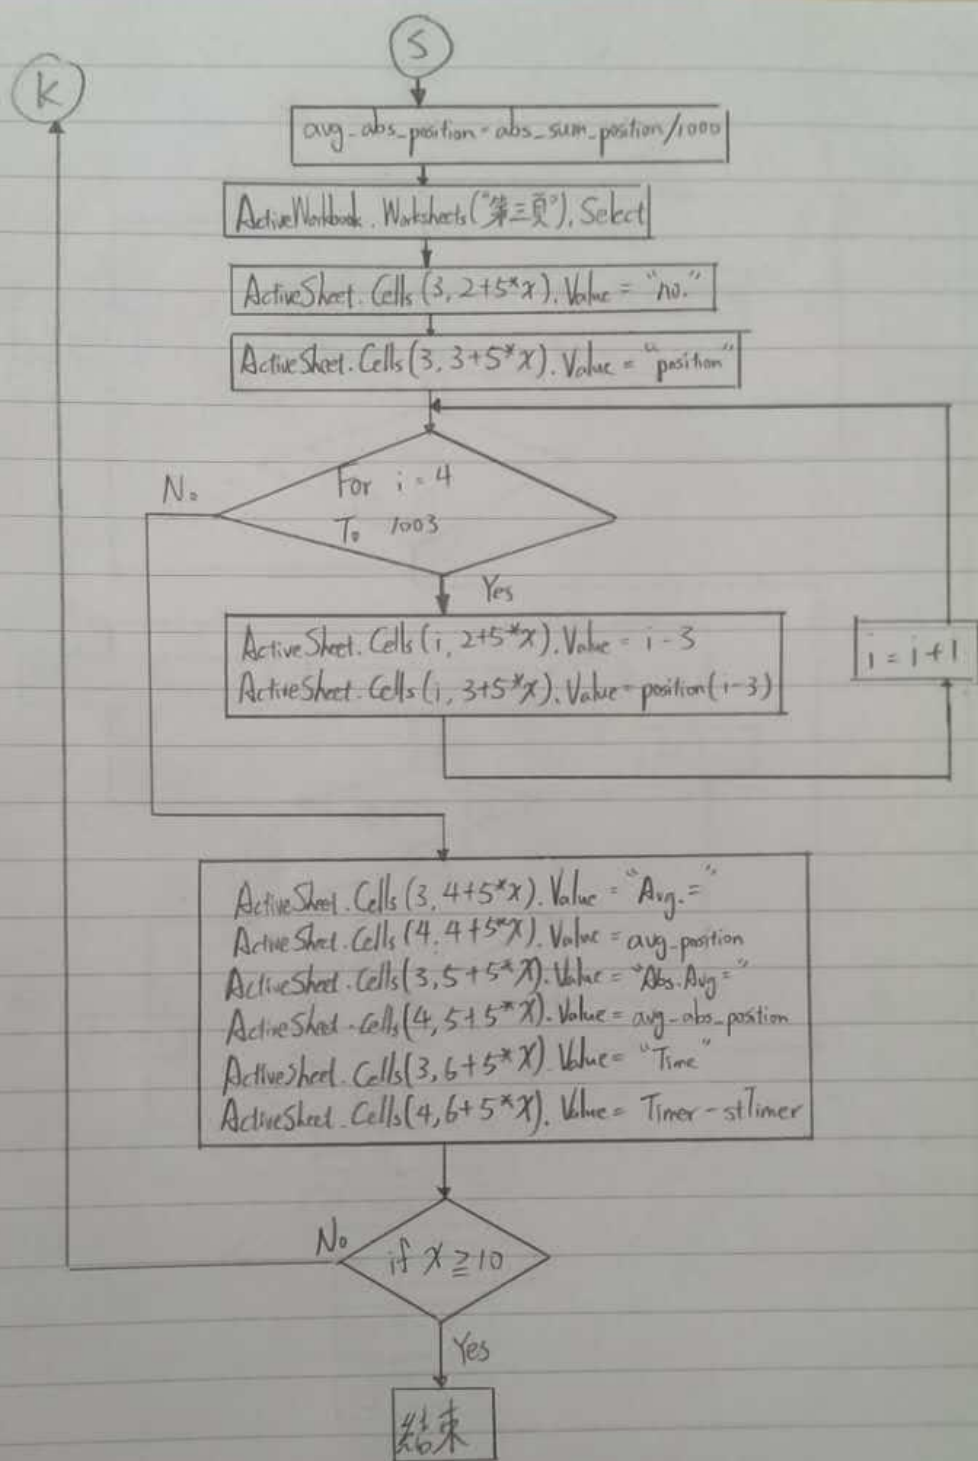 S
K
avg_abs_position=abs_sum_position/1000
ActiveWorkbook.Worksheets("第三頁").Select
ActiveSheet.Cells(3,2+5*X).Value="no."
ActiveSheet.Cells(3,3+5*X).Value="position"
No
For i=4
To 1003
Yes
ActiveSheet.Cells(i,2+5*X).Value=i-3
ActiveSheet.Cells(i,3+5*X).Value=position(i-3)
i=i+1
ActiveSheet.Cells(3,4+5*X).Value="Avg.="
ActiveSheet.Cells(4,4+5*X).Value=avg_position
ActiveSheet.Cells(3,5+5*X).Value="Abs.Avg="
ActiveSheet.Cells(4,5+5*X).Value=avg_abs_position
ActiveSheet.Cells(3,6+5*X).Value="Time"
ActiveSheet.Cells(4,6+5*X).Value=Timer-stTimer
No
if X≧10
Yes
結束